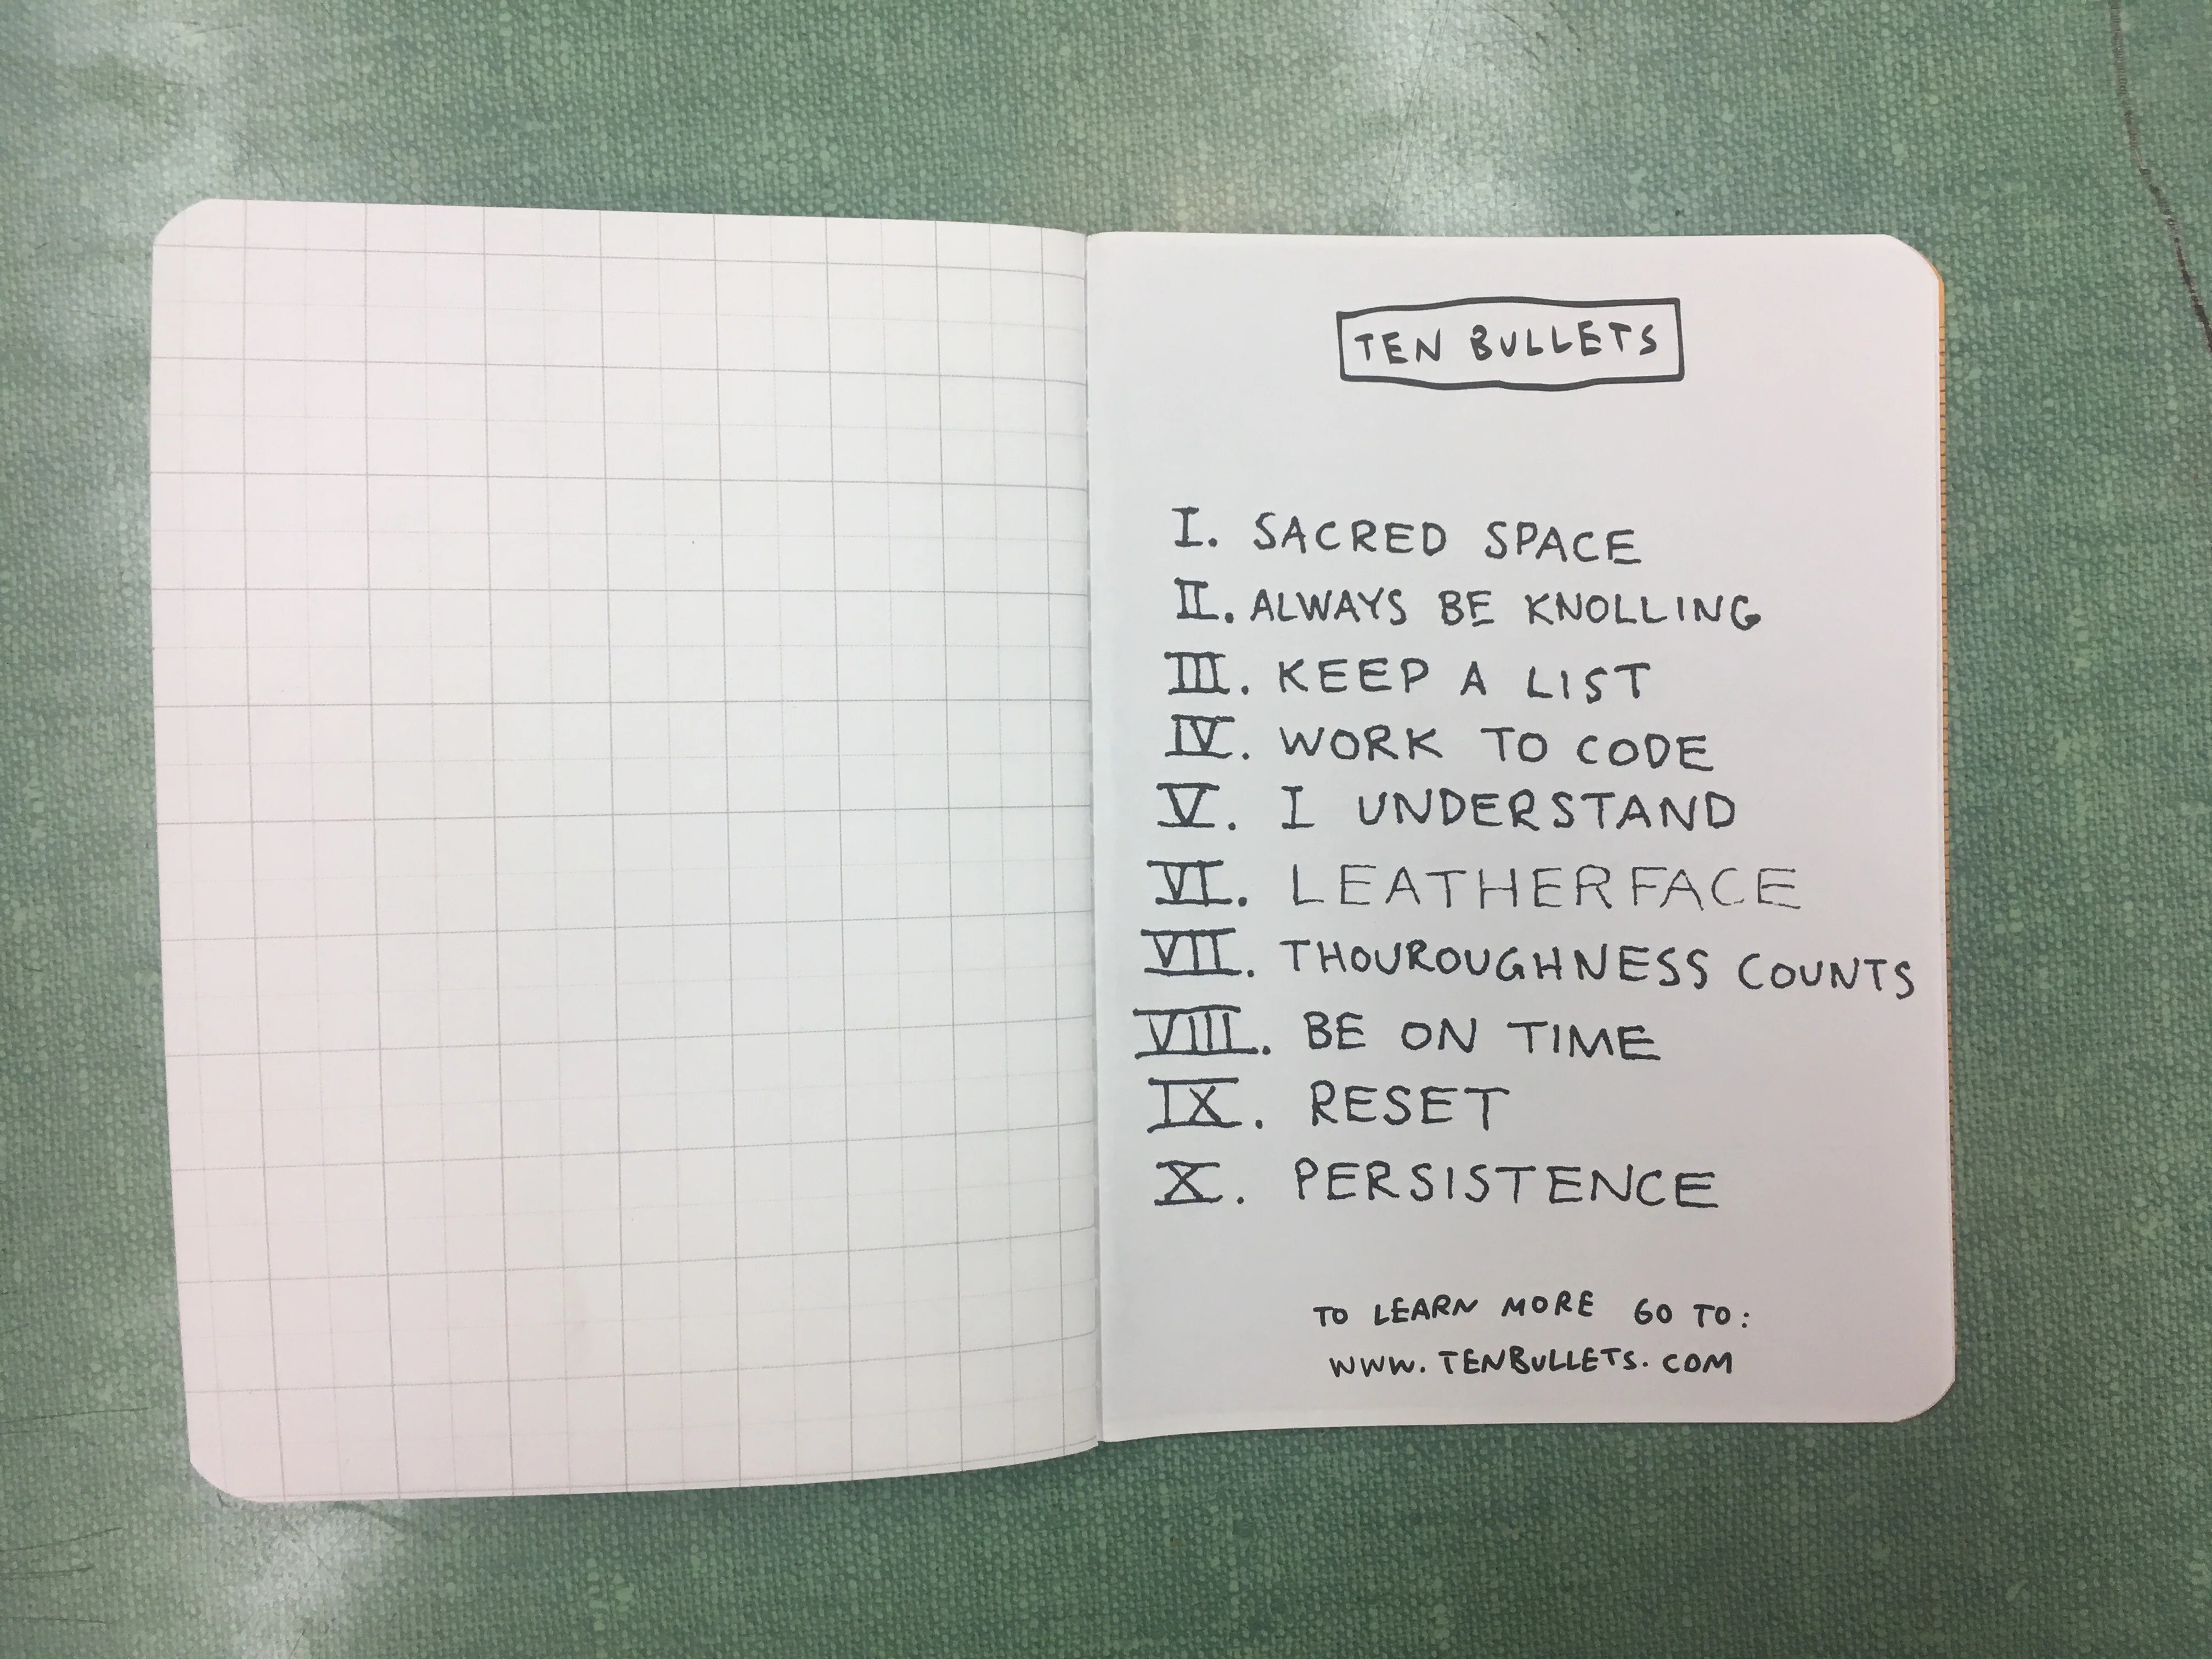 TEN BULLETS
I. SACRED SPACE
II. ALWAYS BE KNOLLING
III. KEEP A LIST
IV. WORK TO CODE
V. I UNDERSTAND
VI. LEATHERFACE
VII. THOUROUGHNESS COUNTS
VIII. BE ON TIME
IX. RESET
X. PERSISTENCE
TO LEARN MORE GO TO:
WWW.TENBULLETS.COM